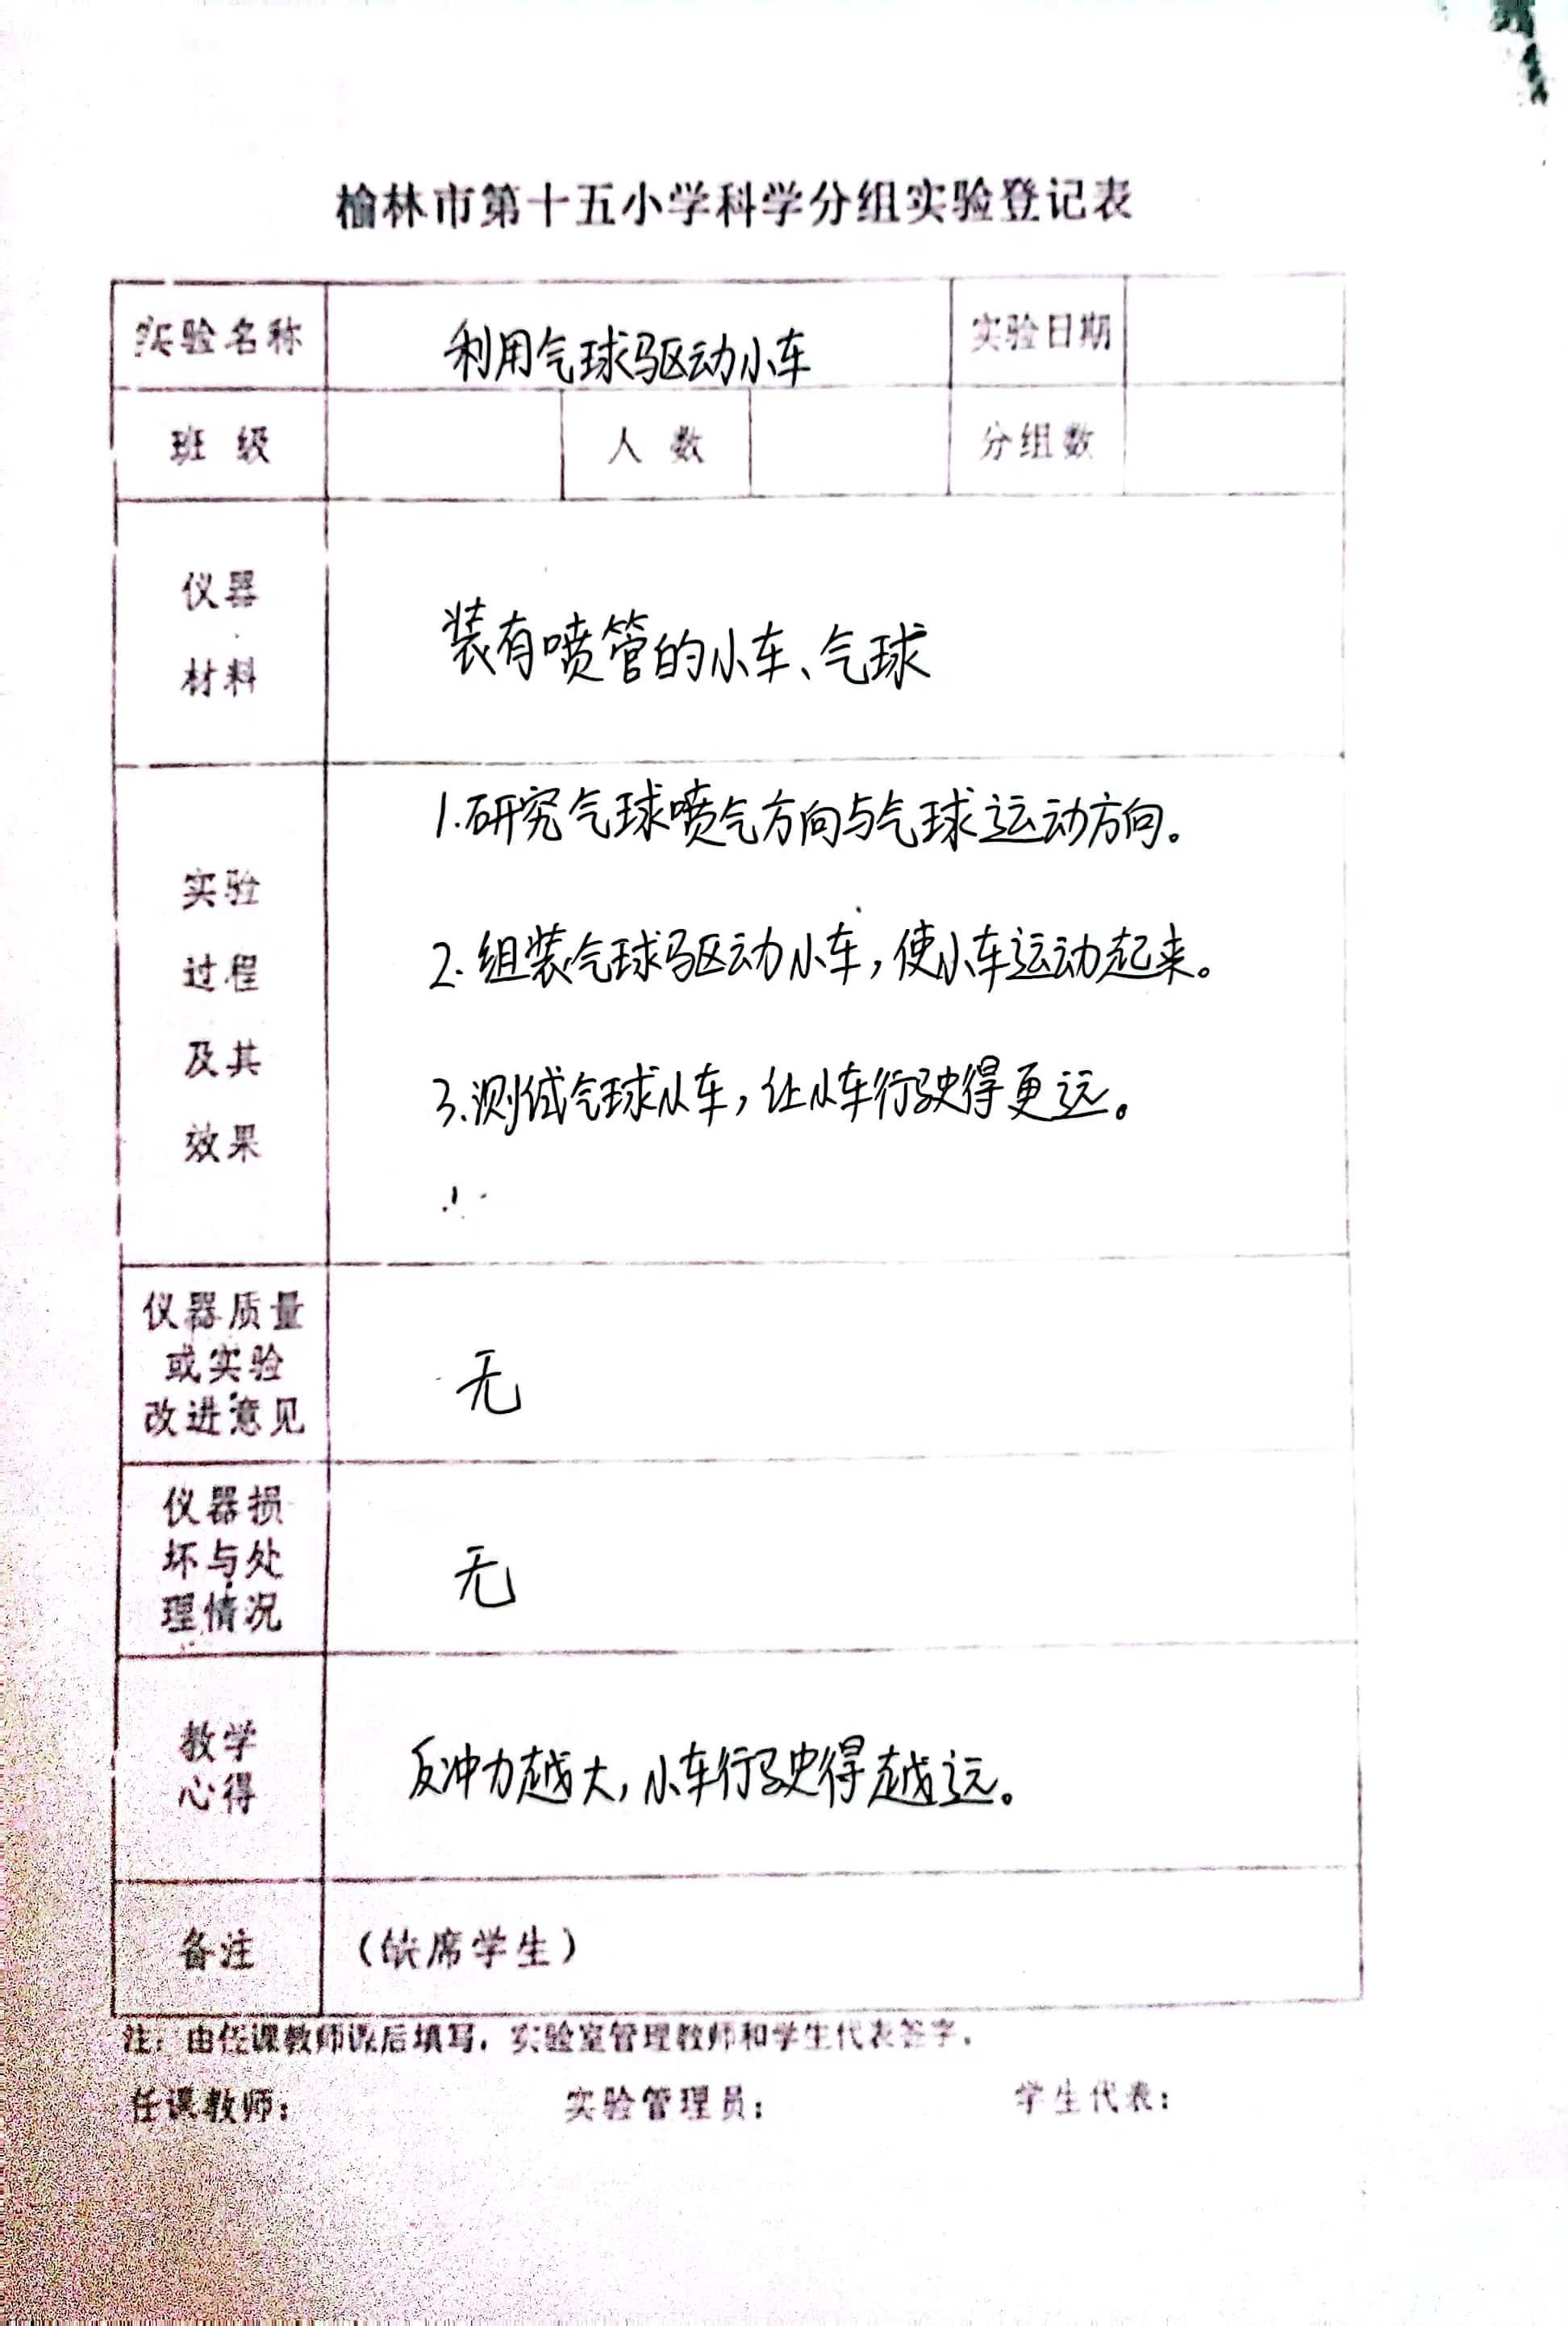 榆林市第十五小学科学分组实验登记表
实验名称 利用气球驱动小车 实验日期
班 级 人 数 分组数
仪器
材料
装有喷管的小车、气球
实验
过程
及其
效果
1.研究气球喷气方向与气球运动方向。
2.组装气球驱动小车,使小车运动起来。
3.测试气球小车,让小车行驶得更远。
仪器质量
或实验
改进意见
无
仪器损
坏与处
理情况
无
教学
心得
反冲力越大,小车行驶得越远。
备注 (缺席学生)
注:由任课教师课后填写,实验室管理教师和学生代表签字。
任课教师: 实验管理员: 学生代表: